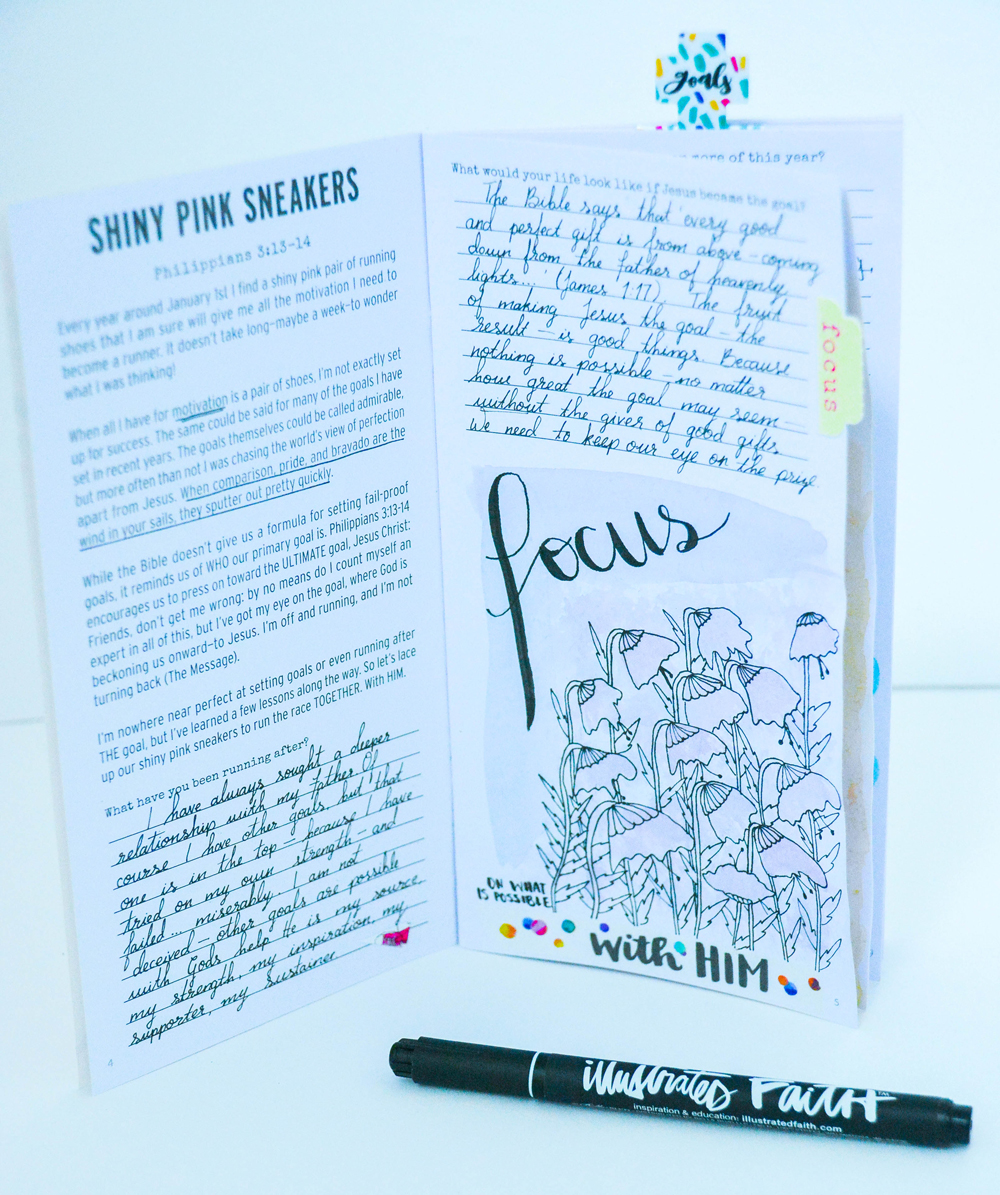 goals
SHINY PINK SNEAKERS
Philippians 3:13-14
Every year around January 1st I find a shiny pink pair of running
shoes that I am sure will give me all the motivation I need to
become a runner. It doesn't take long–maybe a week–to wonder
what I was thinking!
When all I have for motivation is a pair of shoes, I'm not exactly set
up for success. The same could be said for many of the goals I have
set in recent years. The goals themselves could be called admirable,
but more often than not I was chasing the world's view of perfection
apart from Jesus. When comparison, pride, and bravado are the
wind in your sails, they sputter out pretty quickly.
While the Bible doesn't give us a formula for setting fail-proof
goals, it reminds us of WHO our primary goal is. Philippians 3:13-14
encourages us to press on toward the ULTIMATE goal, Jesus Christ:
Friends, don't get me wrong: by no means do I count myself an
expert in all of this, but I've got my eye on the goal, where God is
beckoning us onward–to Jesus. I'm off and running, and I'm not
turning back (The Message).
I'm nowhere near perfect at setting goals or even running after
THE goal, but I've learned a few lessons along the way. So let's lace
up our shiny pink sneakers to run the race TOGETHER. With HIM.
What have you been running after?
I have always sought a deeper
relationship with my father. Of
course I have other goals, but that
one is in the top – because I have
tried on my own strength – and
failed... miserably. I am not
deceived – other goals are possible
with Gods help. He is my source,
my strength, my inspiration, my
supporter, my sustainer
4
more of this year?
What would your life look like if Jesus became the goal?
The Bible says that 'every good
and perfect gift is from above – coming
down from the father of heavenly
lights...' (James 1:17). The fruit
of making Jesus the goal – the
result – is good things. Because
nothing is possible – no matter
how great the goal may seem –
without the giver of good gifts
we need to keep our eye on the prize.
focus
focus
ON WHAT
IS POSSIBLE
with HIM
5
illustrated Faith™
inspiration & education: illustratedfaith.com